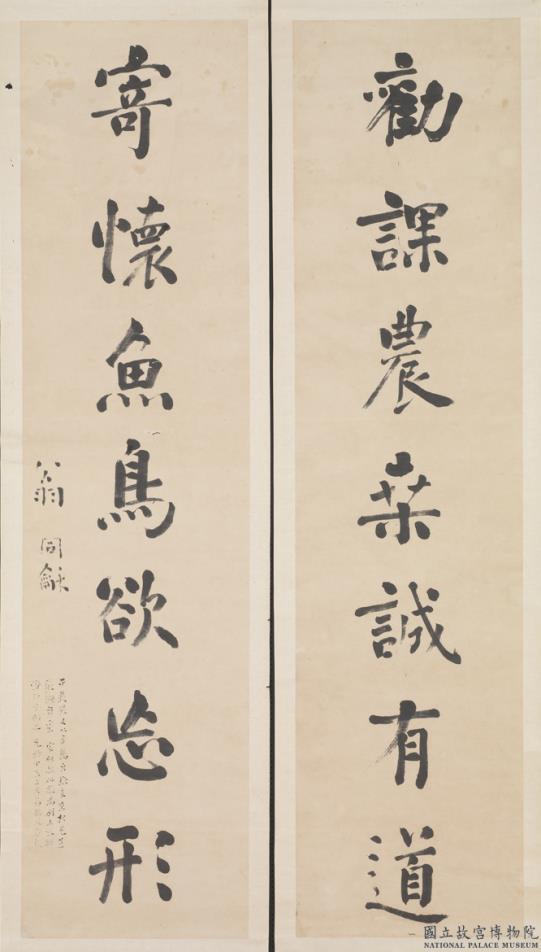 勸課農桒誠有道
寄懷魚鳥欲忘形
翁同龢
國立故宮博物院
NATIONAL PALACE MUSEUM